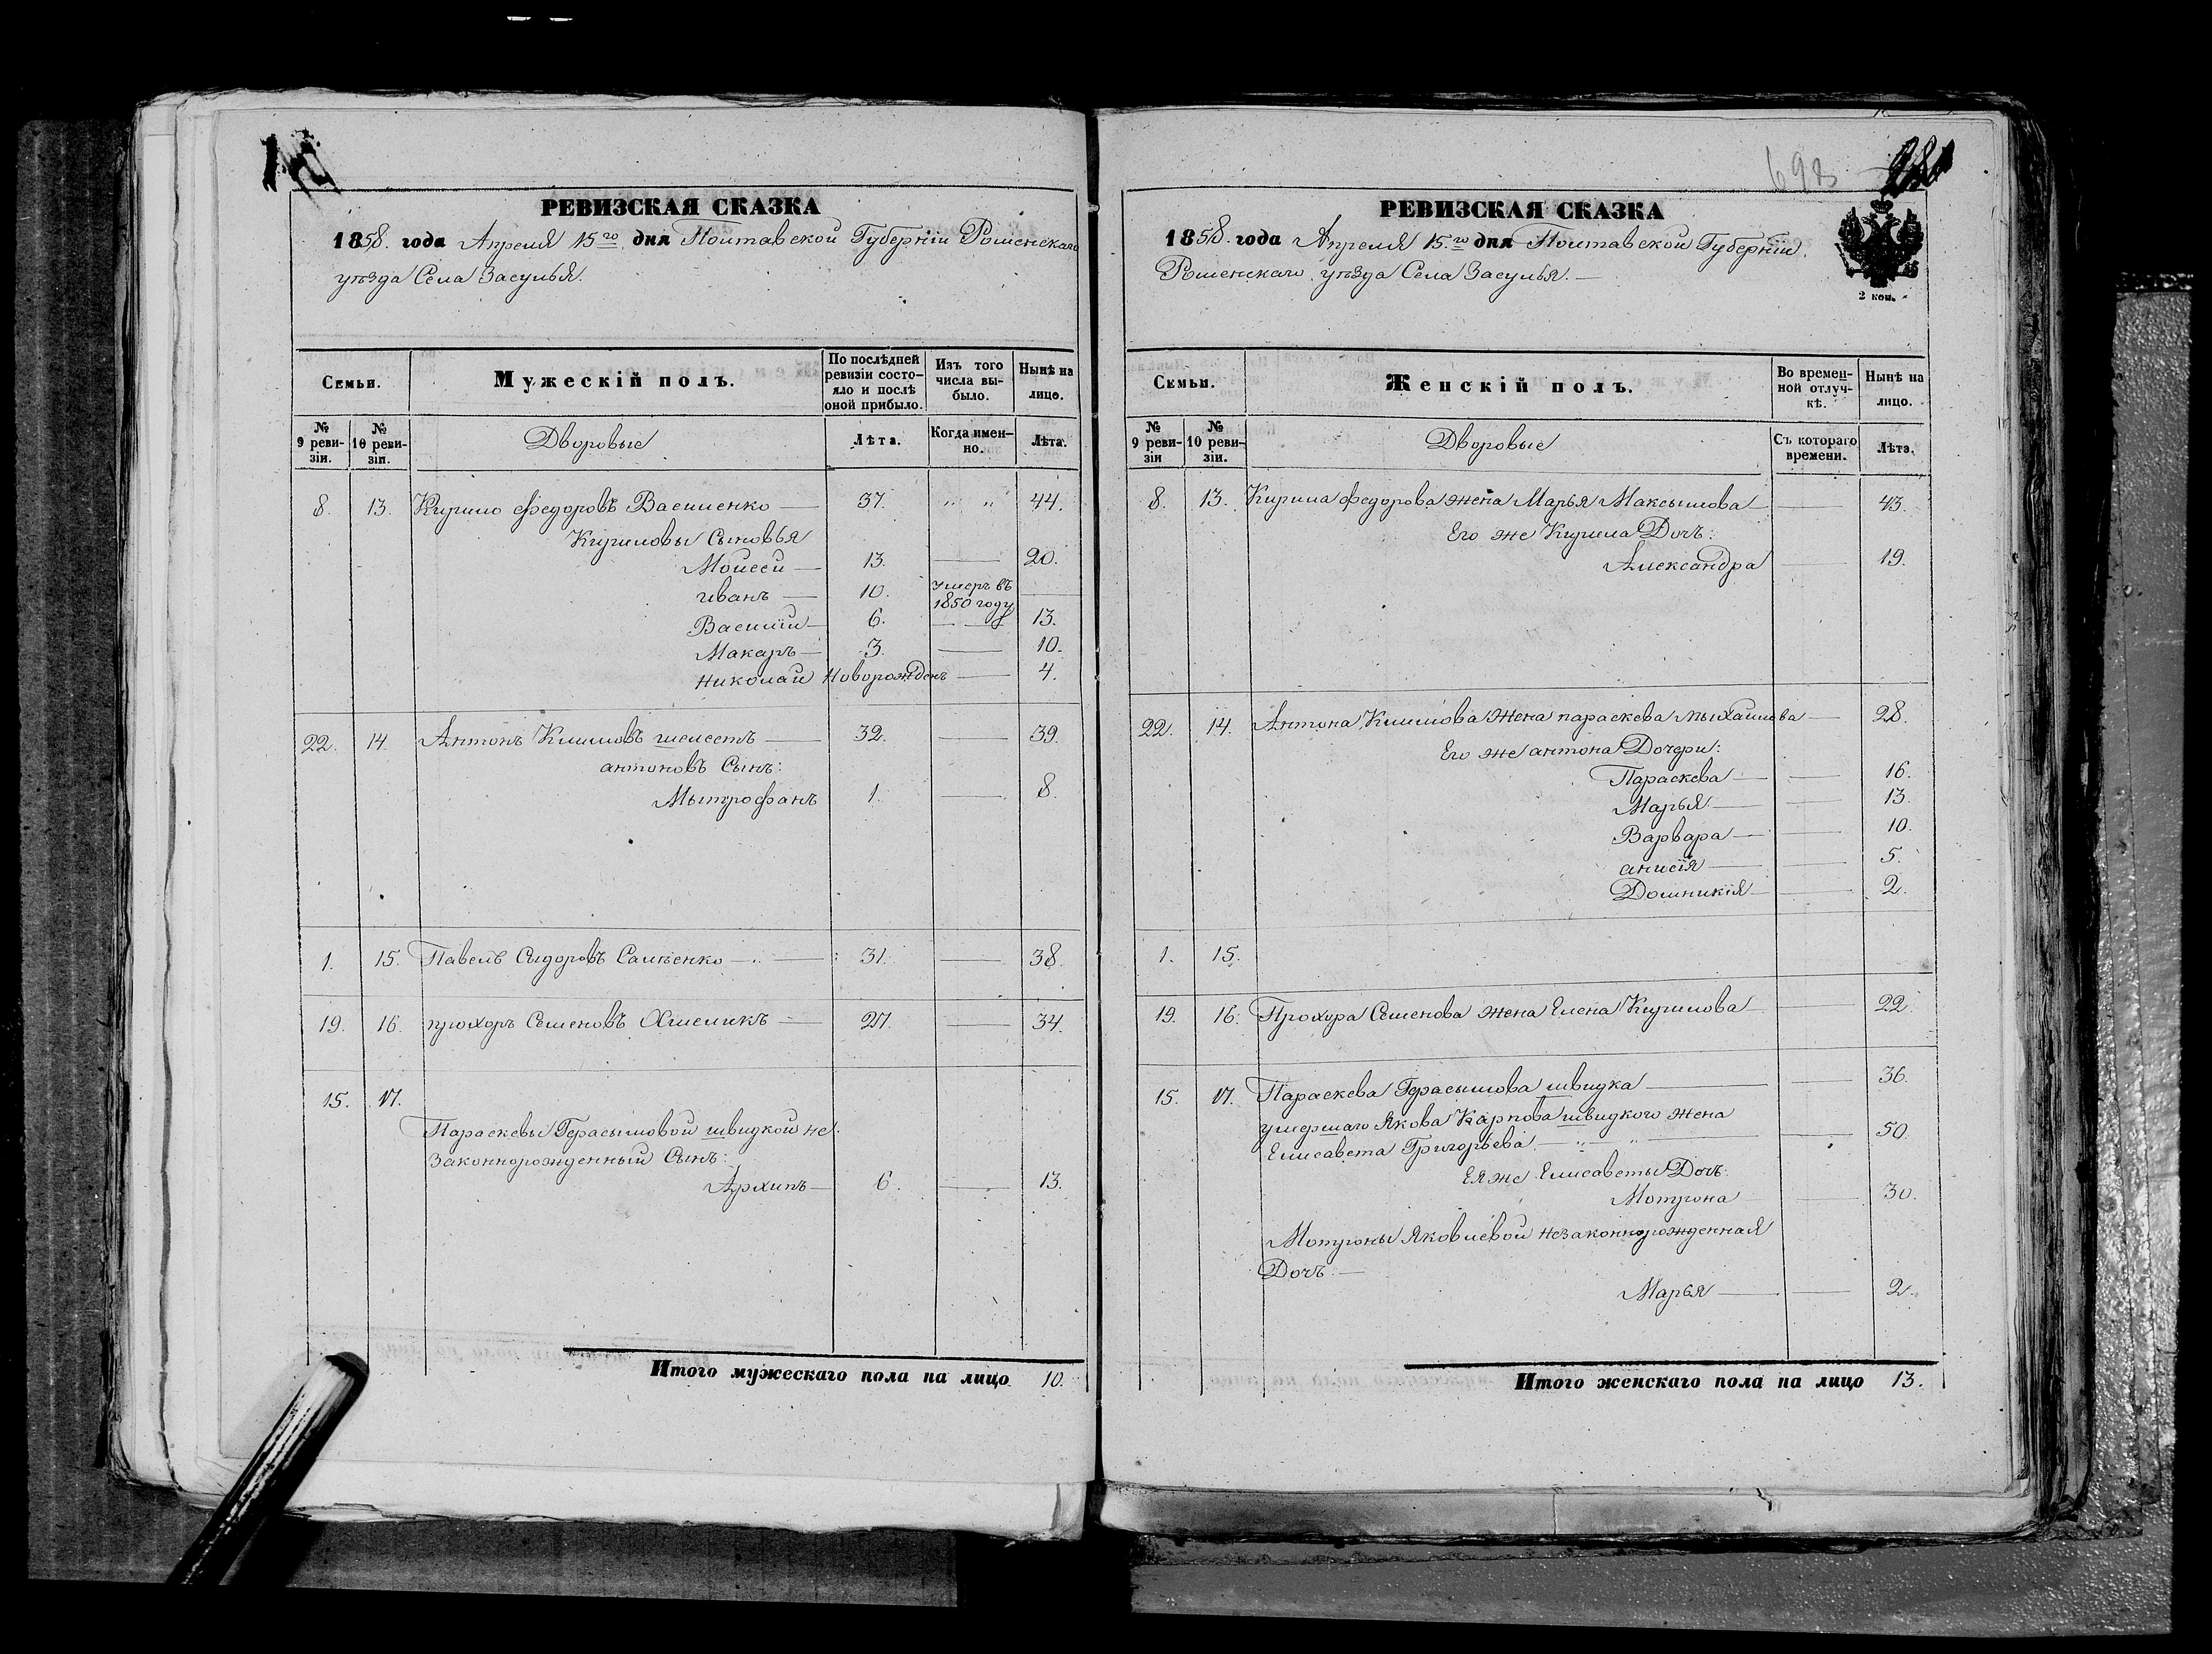 РЕВИЗСКАЯ СКАЗКА
1858. года Апреля 15го дня Полтавской Губерніи Роменскаго
уѣзда Села Засулья.
Семьи.
Мужескій полъ.
По послѣдней ревизіи состояло и послѣ оной прибыло.
Изъ того числа выбыло.
Нынѣ на лицо.
№ 9 ревизіи.
№ 10 ревизіи.
Дворовые
Лѣта.
Когда именно.
Лѣта.
8. 13. Кирило Федоровъ Василенко — 37. „ „ 44.
Кириловы Сыновья
Моисей — 13. — 20.
иванъ — 10. умеръ въ 1850 году —
Василій — 6. — 13.
Макаръ — 3. — 10.
николай Новорожденъ — 4.
22. 14. Антонъ Климовъ шелестъ — 32. — 39.
антоновъ Сынъ:
Мытрофанъ 1. — 8.
1. 15. Павелъ Сыдоровъ — 31. — 38.
19. 16. прохоръ Семеновъ Хмеликъ — 27. — 34.
15. 17.
Параскевы Герасымовой швидкой не
законнорожденный Сынъ:
Архипъ — 6. — 13.
Итого мужескаго пола на лицо 10.
РЕВИЗСКАЯ СКАЗКА
1858. года Апреля 15.го дня Полтавской Губерніи.
Роменскаго уѣзда Села Засулья. —
2 коп.
Семьи.
Женскій полъ.
Во временной отлучкѣ.
Нынѣ на лицо.
№ 9 ревизіи
№ 10 ревизіи.
Дворовые
Съ котораго времени.
Лѣта.
8. 13. Кирила Федорова жена Марья Максымова — — 43.
Его же Кирила Дочь:
Александра — 19.
22. 14. Антона Климова жена параскева мыхайлова — 28.
Его же антона Дочери:
Параскева — — 16.
Марья — — 13.
Варвара — — 10.
анисія — — 5.
Домникія — — 2.
1. 15.
19. 16. Прохора Семенова жена Елена Кирилова — — 22.
15. 17. Параскева Герасымова швидка — — 36.
умершаго Якова Карпова швидкого жена
Елисавета Григорьева — „ — „ — — 50.
Ея же Елисаветы Дочь:
Мотрона — 30.
Мотроны Яковлевой незаконнорожденная
Дочь —
Марья — — 2.
Итого женскаго пола на лицо 13.